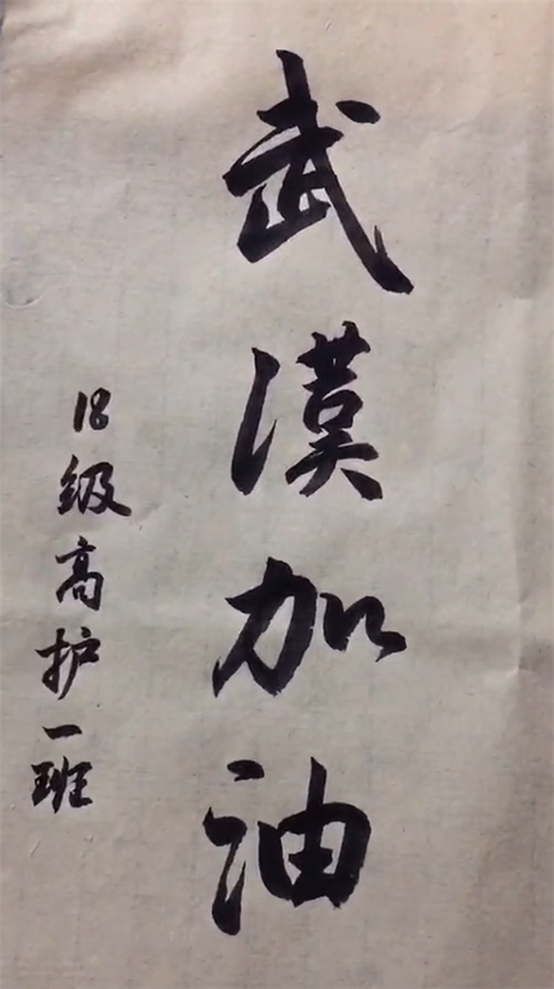 武漢加油
18级高护一班